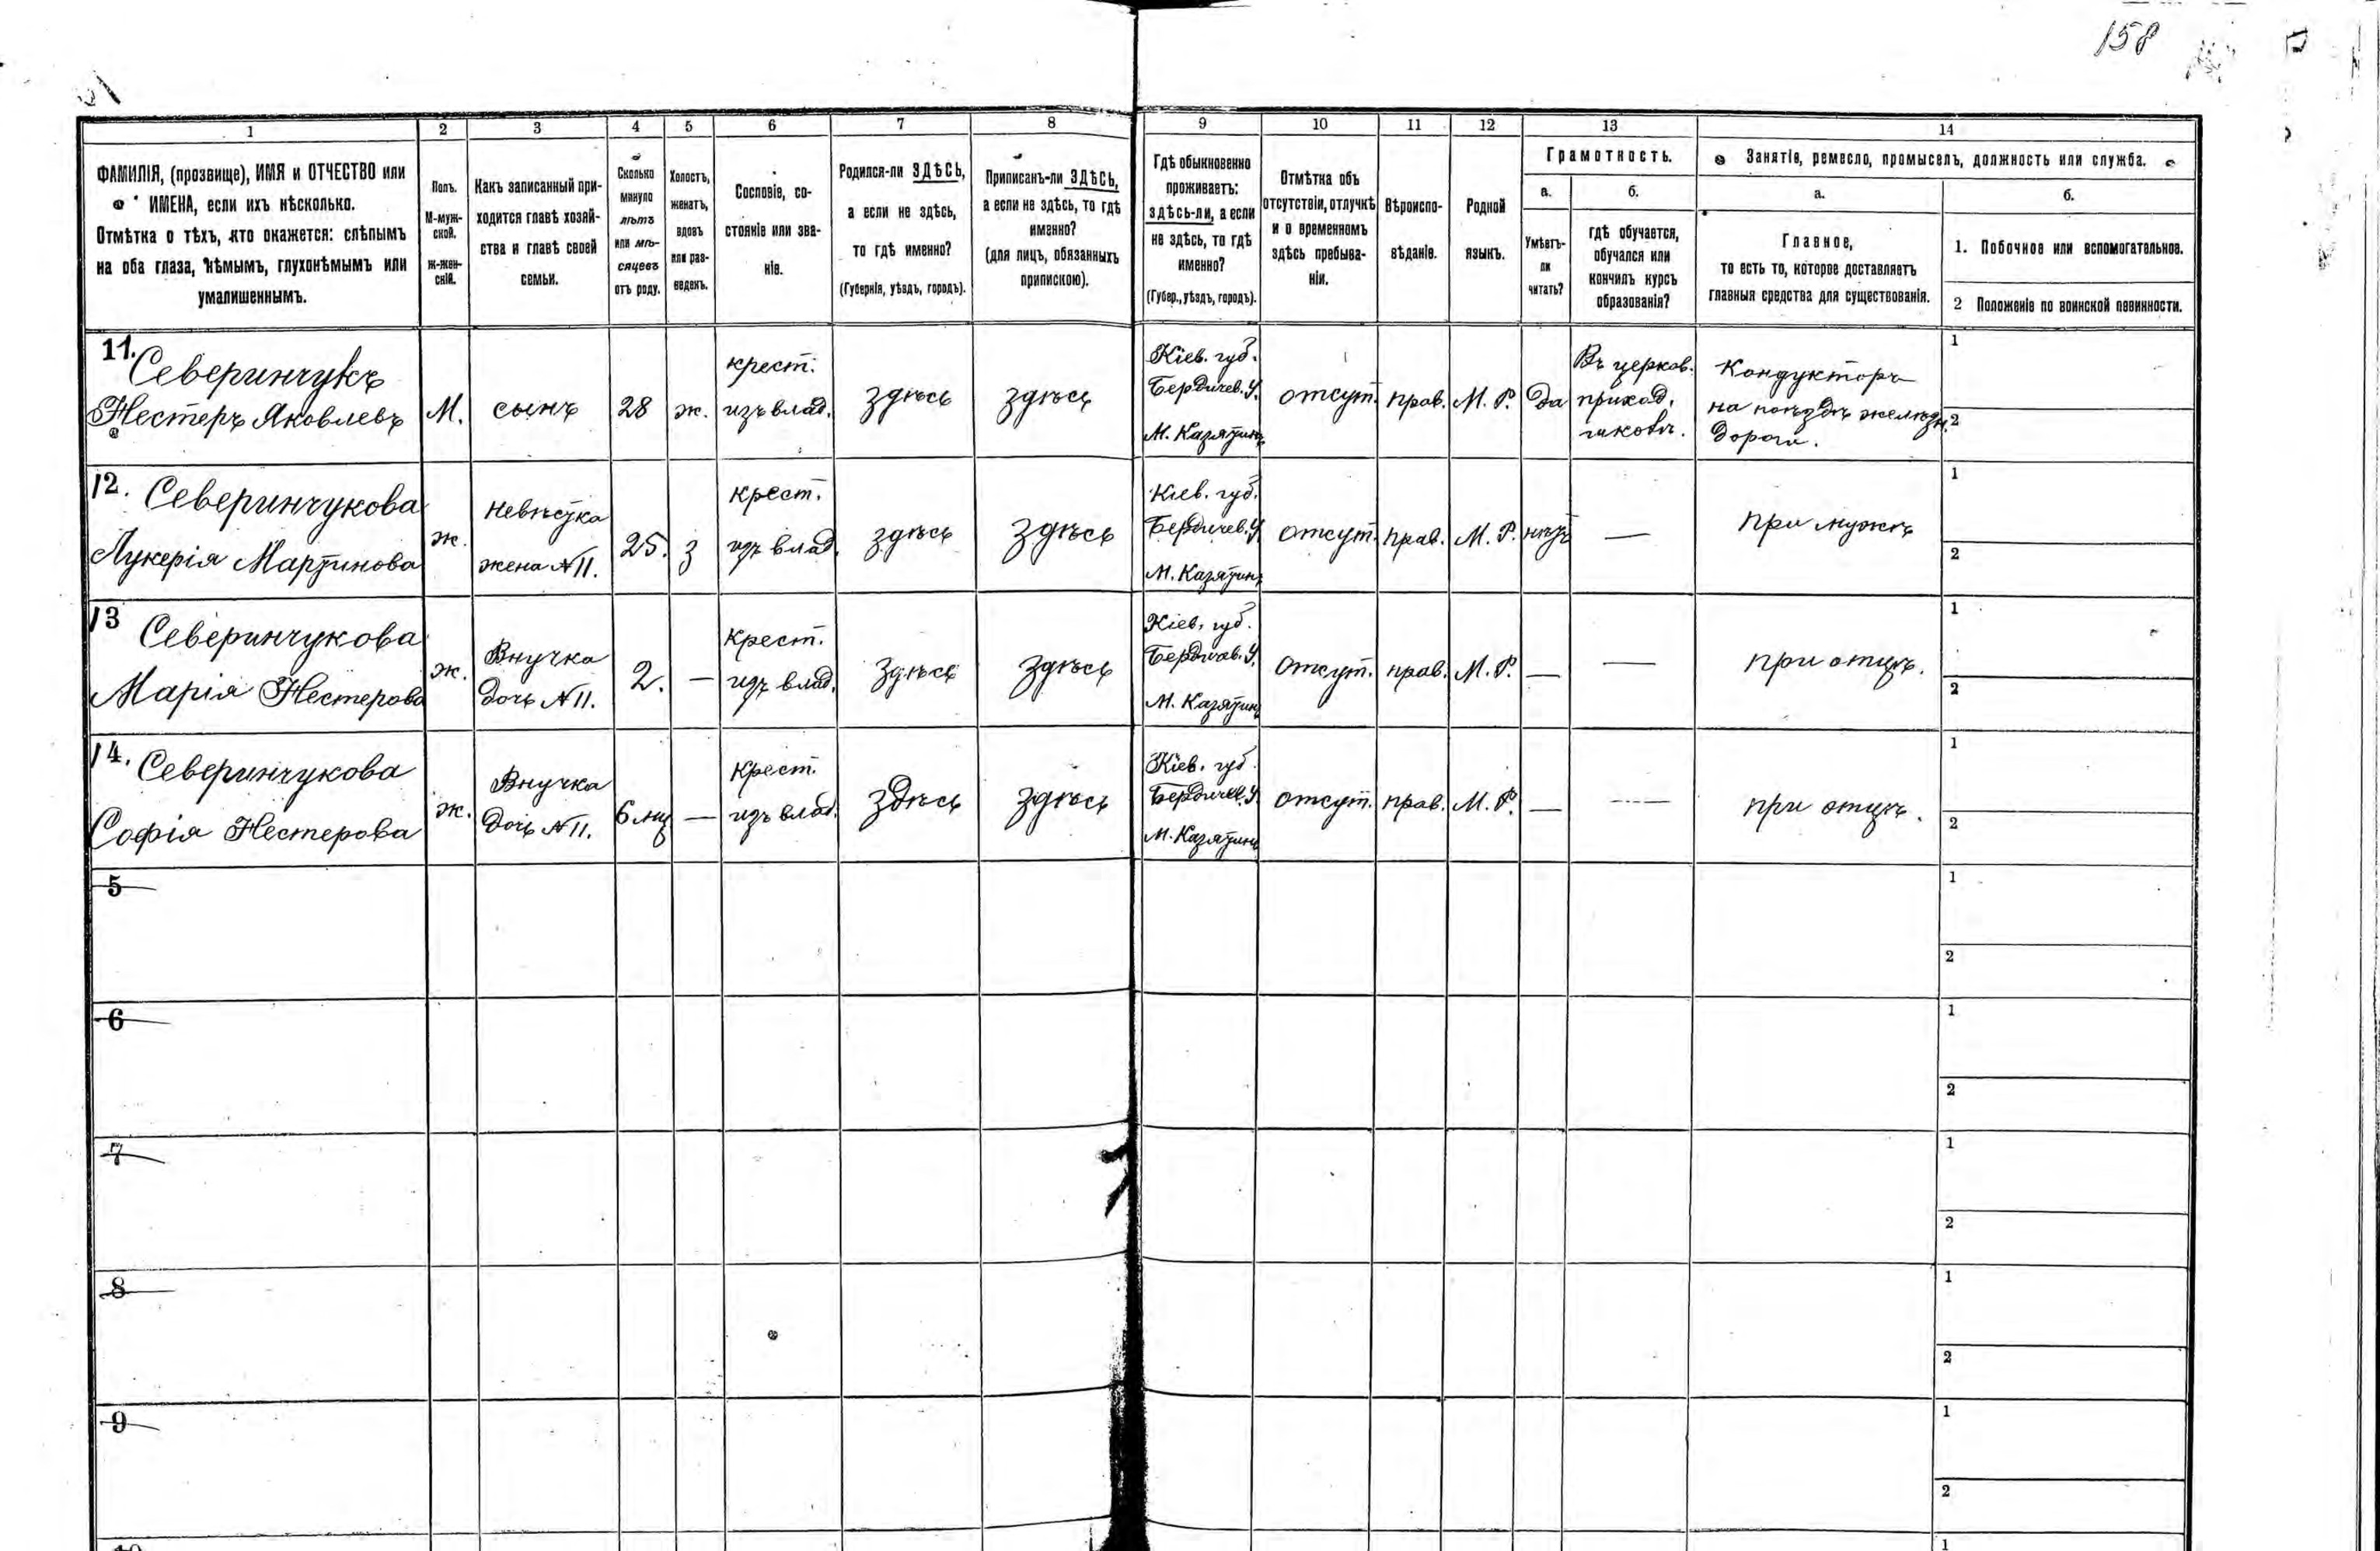 158
1 2 3 4 5 6 7 8 9 10 11 12 13 14
ФАМИЛІЯ, (прозвище), ИМЯ и ОТЧЕСТВО или
ИМЕНА, если ихъ нѣсколько.
Отмѣтка о тѣхъ, кто окажется: слѣпымъ
на оба глаза, нѣмымъ, глухонѣмымъ или
умалишеннымъ.
Полъ.
М-муж-
ской.
ж-жен-
скій.
Какъ записанный при-
ходится главѣ хозяй-
ства и главѣ своей
семьи.
Сколько
минуло
лѣтъ
или мѣ-
сяцевъ
отъ роду.
Холостъ,
женатъ,
вдовъ
или раз-
веденъ.
Сословіе, со-
стояніе или зва-
ніе.
Родился-ли ЗДѢСЬ,
а если не здѣсь,
то гдѣ именно?
(Губернія, уѣздъ, городъ).
Приписанъ-ли ЗДѢСЬ,
а если не здѣсь, то гдѣ
именно?
(для лицъ, обязанныхъ
припискою).
Гдѣ обыкновенно
проживаетъ:
здѣсь-ли, а если
не здѣсь, то гдѣ
именно?
(Губер., уѣздъ, городъ).
Отмѣтка объ
отсутствіи, отлучкѣ
и о временномъ
здѣсь пребыва-
ніи.
Вѣроиспо-
вѣданіе.
Родной
языкъ.
Грамотность.
а.
Умѣетъ-
ли
читать?
б.
гдѣ обучается,
обучался или
кончилъ курсъ
образованія?
Занятіе, ремесло, промыселъ, должность или служба.
а.
Главное,
то есть то, которое доставляетъ
главныя средства для существованія.
б.
1. Побочное или вспомогательное.
2 Положеніе по воинской повинности.
11.
Северинчукъ
Нестеръ Яковлевъ
М.
сынъ
28
ж.
крест.
изъ влад.
здѣсь
здѣсь
Кіев. губ.
Бердичев. У.
М. Казятинъ
отсут.
прав.
М. Р.
да
Въ церков.
приход.
Кондукторъ
на поѣздѣ желѣзн.
дороги.
1
2
12. Северинчукова
Лукерія Мартинова
ж.
невѣстка
жена №11.
25.
з
крест.
изъ влад.
здѣсь
здѣсь
Кіев. губ.
Бердичев. У.
М. Казятинъ
отсут.
прав.
М. Р.
нѣтъ
—
при мужѣ
1
2
13 Северинчукова
Марія Нестерова
ж.
Внучка
дочь №11.
2.
—
Крест.
изъ влад.
здѣсь
здѣсь
Кіев. губ.
Бердичев. У.
М. Казятинъ
отсут.
прав.
М. Р.
—
—
при отцѣ.
1
2
14. Северинчукова
Софія Нестерова
ж.
Внучка
дочь №11.
6 мц
—
Крест.
изъ влад.
здѣсь
здѣсь
Кіев. губ.
Бердичев. У.
М. Казятинъ
отсут.
прав.
М. Р.
—
—
при отцѣ.
1
2
5
1
2
6
1
2
7
1
2
8
1
2
9
1
2
1